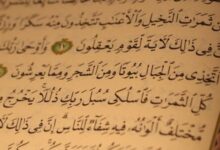 ثَمَرَٰتِ ٱلنَّخِيلِ وَٱلْأَعْنَٰبِ تَتَّخِذُونَ مِنْهُ سَكَرًا وَرِزْقًا
فِى ذَٰلِكَ لَءَايَةً لِّقَوْمٍ يَعْقِلُونَ ٦٧ وَأَوْحَىٰ رَبُّكَ
ٱتَّخِذِى مِنَ ٱلْجِبَالِ بُيُوتًا وَمِنَ ٱلشَّجَرِ وَمِمَّا يَعْرِشُونَ
كُلِّ ٱلثَّمَرَٰتِ فَٱسْلُكِى سُبُلَ رَبِّكِ ذُلُلًا يَخْرُجُ
مُّخْتَلِفٌ أَلْوَٰنُهُۥ فِيهِ شِفَآءٌ لِّلنَّاسِ إِنَّ فِى ذَٰلِكَ